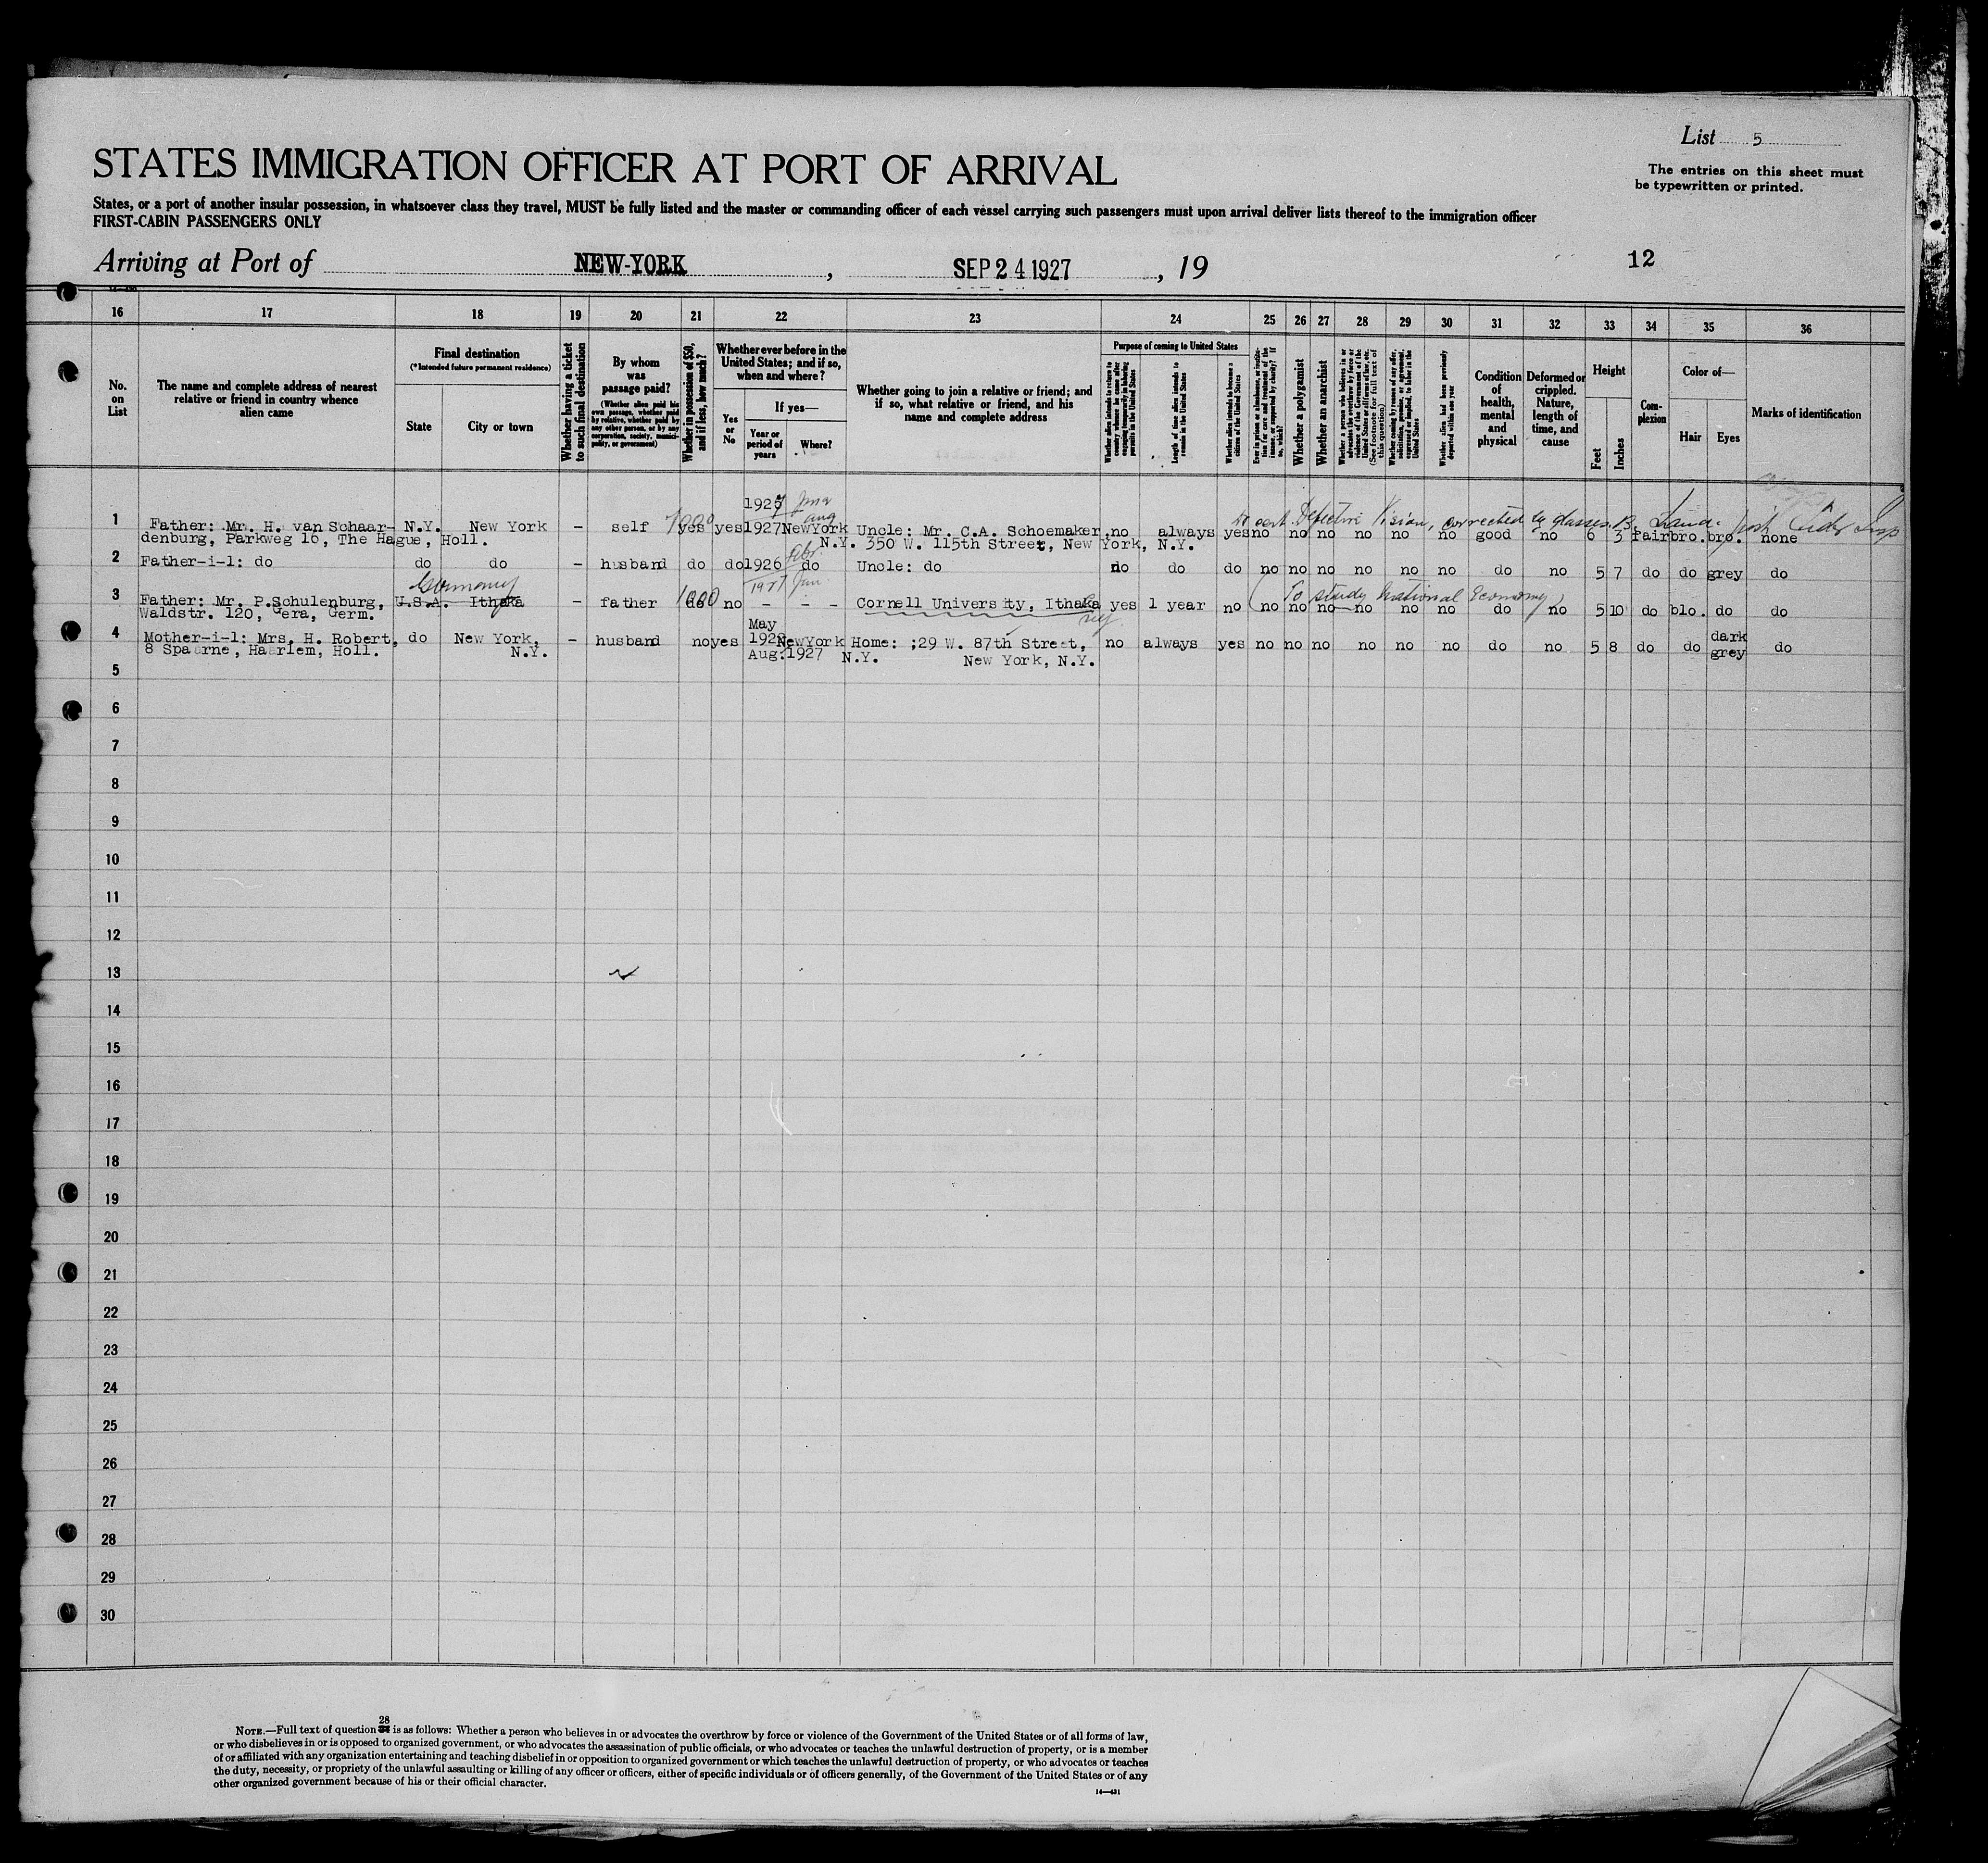 List 5
The entries on this sheet must
be typewritten or printed.
STATES IMMIGRATION OFFICER AT PORT OF ARRIVAL
States, or a port of another insular possession, in whatsoever class they travel, MUST be fully listed and the master or commanding officer of each vessel carrying such passengers must upon arrival deliver lists thereof to the immigration officer
FIRST-CABIN PASSENGERS ONLY
Arriving at Port of NEW-YORK, SEP 24 1927, 19
12
16 17 18 19 20 21 22 23 24 25 26 27 28 29 30 31 32 33 34 35 36
No. on List
The name and complete address of nearest relative or friend in country whence alien came
Final destination
(*Intended future permanent residence)
State
City or town
Whether having a ticket to such final destination
By whom was passage paid?
(Whether alien paid his own passage, whether paid by relative, whether paid by any other person, or by any corporation, society, municipality, or government)
Whether in possession of $50, and if less, how much?
Whether ever before in the United States; and if so, when and where?
Yes or No
If yes—
Year or period of years
Where?
Whether going to join a relative or friend; and if so, what relative or friend, and his name and complete address
Purpose of coming to United States
Whether alien intends to return to country whence he came after engaging temporarily in laboring pursuits in the United States
Length of time alien intends to remain in the United States
Whether alien intends to become a citizen of the United States
Ever in prison or almshouse, or institution for care and treatment of the insane, or supported by charity? If so, which?
Whether a polygamist
Whether an anarchist
Whether a person who believes in or advocates the overthrow by force or violence of the Government of the United States or all forms of law, etc. (See footnote for full text of this question)
Whether coming by reason of any offer, solicitation, promise, or agreement, expressed or implied, to labor in the United States
Whether alien had been previously deported within one year
Condition of health, mental and physical
Deformed or crippled. Nature, length of time, and cause
Height
Feet
Inches
Complexion
Color of—
Hair
Eyes
Marks of identification
1925
to cert. Defective Vision, corrected by glasses.
1 Father: Mr. H. van Schaar- N.Y. New York – self yes yes 1927 NewYork Uncle: Mr. C.A. Schoemaker, no always yes no no no no no no good no 6 3 fair bro. bro. none
denburg, Parkweg 16, The Hague, Holl. N.Y. 350 W. 115th Street, New York, N.Y.
2 Father-i-l: do do do – husband do do 1926 do Uncle: do no do do no no no no no no do no 5 7 do do grey do
Germany 1927 Jun. (To study National Economy)
3 Father: Mr. P.Schulenburg, U.S.A. Ithaka – father 1000 no – – – Cornell University, Ithaka yes 1 year no no no no no no no do no 5 10 do blo. do do
Waldstr. 120, Gera, Germ.
May
4 Mother-i-l: Mrs. H. Robert, do New York, – husband no yes 1920 NewYork Home: ;29 W. 87th Street, no always yes no no no no no no do no 5 8 do do dark grey do
8 Spaarne, Haarlem, Holl. N.Y. Aug:1927 N.Y. New York, N.Y.
5
6
7
8
9
10
11
12
13
14
15
16
17
18
19
20
21
22
23
24
25
26
27
28
29
30
28
NOTE.—Full text of question is as follows: Whether a person who believes in or advocates the overthrow by force or violence of the Government of the United States or of all forms of law,
or who disbelieves in or is opposed to organized government, or who advocates the assassination of public officials, or who advocates or teaches the unlawful destruction of property, or is a member
of or affiliated with any organization entertaining and teaching disbelief in or opposition to organized government or which teaches the unlawful destruction of property, or who advocates or teaches
the duty, necessity, or propriety of the unlawful assaulting or killing of any officer or officers, either of specific individuals or of officers generally, of the Government of the United States or of any
other organized government because of his or their official character.
14—431